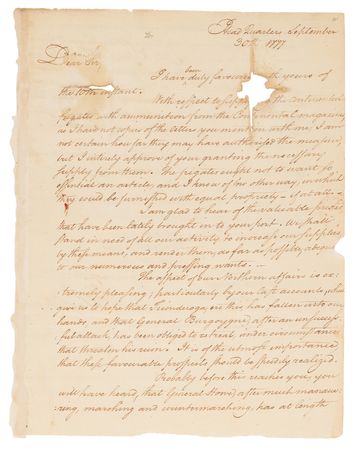 Head Quarters September
30th 1777
Dear Sir,
I have been duly favoured with yours of
the 10th instant.
With respect to the Continental
frigates with ammunition from the Continental magazines,
as I have not copies of the letters you mention with me, I am
not certain how far they may have authorised the measure;
but I intirely approve of your granting the necessary
supply from them. The frigates ought not to want so
essential an article, and I know of no other way, in which
they could be furnished with equal propriety – if at all –
I am glad to hear of the valuable prizes
that have been lately brought in to your port. We shall
stand in need of all our activity to increase our supplies
by these means, and render them, as far as possible, adequate
to our numerous and pressing wants.
The aspect of our Northern affairs is ex=
tremely pleasing; particularly by the last accounts, which
give us to hope that Ticonderoga, ere this has fallen into our
hands and that General Burgoyne, after an unsuccess=
ful attack, has been obliged to retreat, under circumstances
that threaten his ruin. It is of the utmost importance
that these favourable prospects should be speedily realized.
Probably before this reaches you, you
will have heard, that General Howe, after much manœuv=
ring, marching and countermarching, has at length